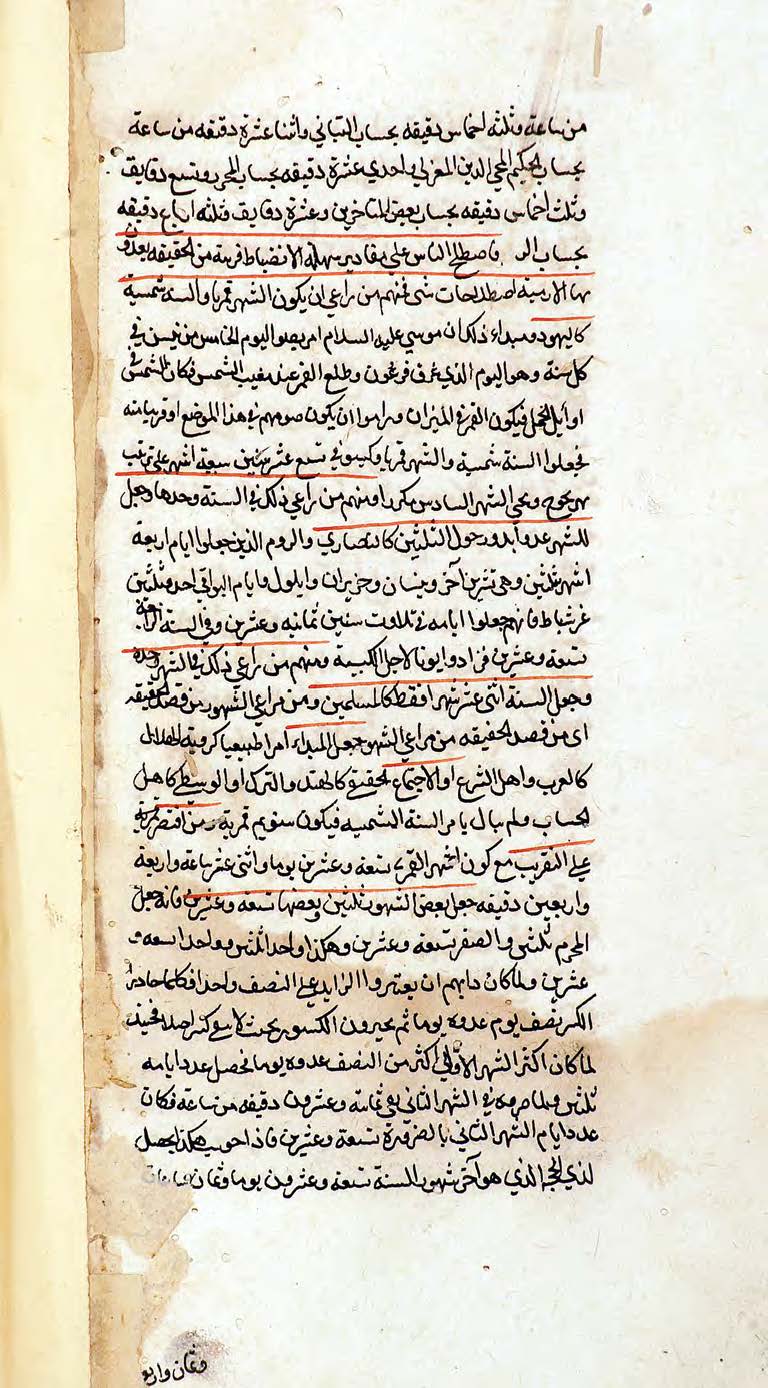 من ساعة وثلثه اخماس دقيقه بحساب التباني واثنا عشرة دقيقه من ساعة
بحساب الحكيم المحي الدين المغربي واحدي عشرة دقيقه بحساب المجر وتسع دقايق
وثلث اخماس دقيقه بحساب بعض المتاخرين وعشرة دقايق وثلثه ارباع دقيقه
بحساب الر فاصطلح الناس علي مقادير سهلة الانضباط قريبة من الحقيقه يعدون
بها الازمنة اصطلاحات شتي فمنهم من راعي ان يكون الشهر قمريا والسنه شمسية
كاليهود ومبداء ذلك ان موسي عليه السلام امر بصوم اليوم الخامس من نيسن في
كل سنة وهو اليوم الذي غرق فرعون وطلع القمر عند مغيب الشمس فكان الشمس في
اوايل الحمل فيكون القمر في الميزان وراموا ان يكون صومهم في هذا الموضع او قريبا منه
فجعلوا السنة شمسية والشهر قمريا وكبسوا في تسع عشر سنين سبعة اشهر علي ترتيب
بهزيجوح وبجي الشهر السادس مكررا ومنهم من راعي ذلك في السنة وحدها وجعل
للشهر عددا يدور حول الثلثين كالنصاري والروم الذين جعلوا ايام اربعة
اشهر ثلثين وهي تشرين آخر ونيسان وحزيران وايلول وايام البواقي احد وثلثين
غير شباط فانهم جعلوا ايامه في ثلاث سنين ثمانيه وعشرين وفي السنة الرابعة
تسعة وعشرين فزادوا يوما لاجل الكبيسة ومنهم من راعي ذلك في الشهر وحده
وجعل السنة اثني عشر شهرا فقط كالمسلمين ومن مراعي الشهور من قصد الحقيقه
اي من قصد الحقيقه من مراعي الشهو جعل المبداء امرا طبيعيا كروية الهلال
كالعرب واهل الشرع او الاجتماع الحقيقي كالهند والترك او الوسطي كاهل
الحساب ولم يبال بامر السنة الشمسيه فيكون سنويم قمرية ومن اقتصر منهم
علي التقريب مع كون الشهر القمري تسعة وعشرين يوما واثني عشر ساعة واربعة
واربعين دقيقه جعل بعض الشهور ثلثين وبعضها تسعة وعشرين فانه جعل
المحرم ثلثين والصفر تسعة وعشرين وهكذا واحدا ثلثين وواحدا تسعه و
عشرين ولما كان دابهم ان يعتبروا الزايد علي النصف واحدا فكلما جاوز
الكسر نصف يوم عدوه يوما ثم يجبرون الكسور بحيث لا يبقي كسر اصلا فحينئذ
لما كان اكثر الشهر الاول في اكثر من النصف عدوه يوما فحصل عدد ايامه
ثلثين ولما صرفوه في الشهر الثاني بقي ثمانية وعشرون دقيقه من ساعة فكان
عدد ايام الشهر الثاني بالضرورة تسعة وعشرين فاذا حوسب هكذا يحصل
لذي الحجة الذي هو آخر شهور السنة تسعة وعشرون يوما وثمان ساعات
وثمان واربع